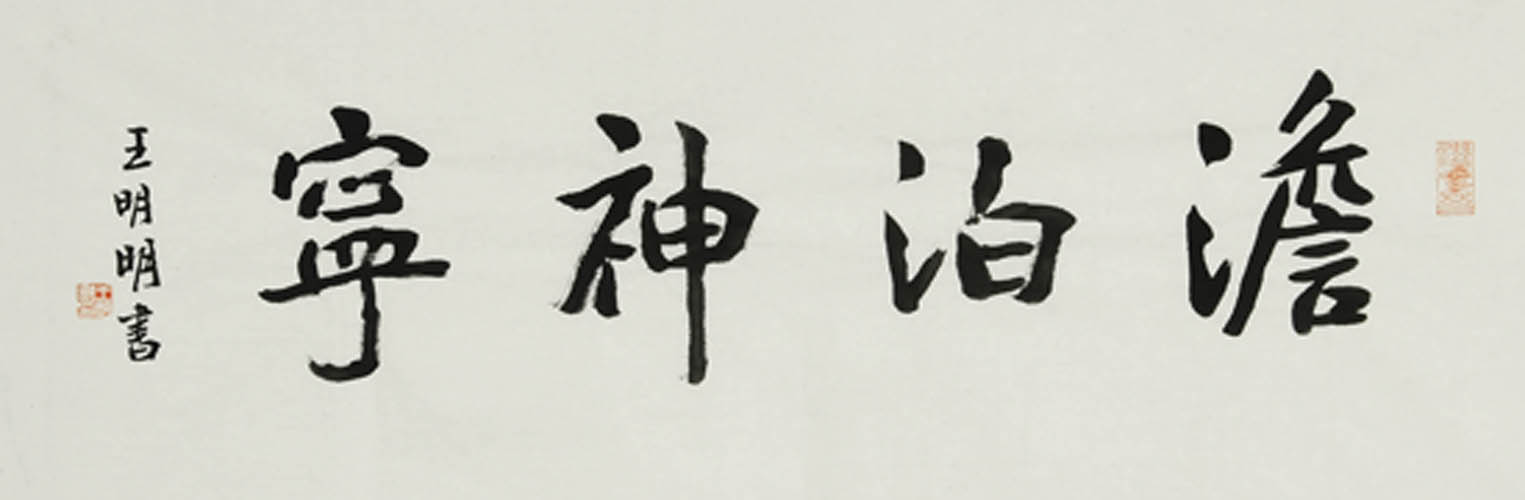 澹泊神寧
王明明書